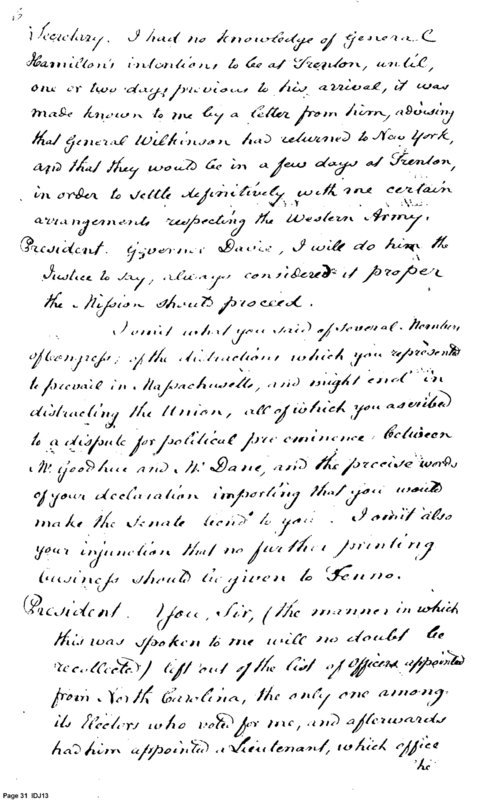 Secretary. I had no knowledge of General
Hamilton's intentions to be at Trenton, until,
one or two days previous to his arrival, it was
made known to me by a letter from him, advising
that General Wilkinson had returned to New York,
and that they would be in a few days at Trenton,
in order to settle definitively with me certain
arrangements respecting the Western Army.
President. Governor Davie, I will do him the
Justice to say, always considered it proper
the Mission should proceed.
I omit what you said of several Members
of Congress; of the distractions which you represented
to prevail in Massachusetts, and might end in
distracting the Union, all of which you ascribed
to a dispute for political pre eminence between
Mr. Goodhue and Mr. Dane, and the precise words
of your declaration importing that you would
make the Senate bend to you. I omit also
your injunction that no further printing
business should be given to Fenno.
President. You, Sir, (the manner in which
this was spoken to me will no doubt be
recollected) left out of the list of Officers appointed
from North Carolina, the only one among
its Electors who voted for me, and afterwards
had him appointed a Lieutenant, which office
he
Page 31 IDJ13